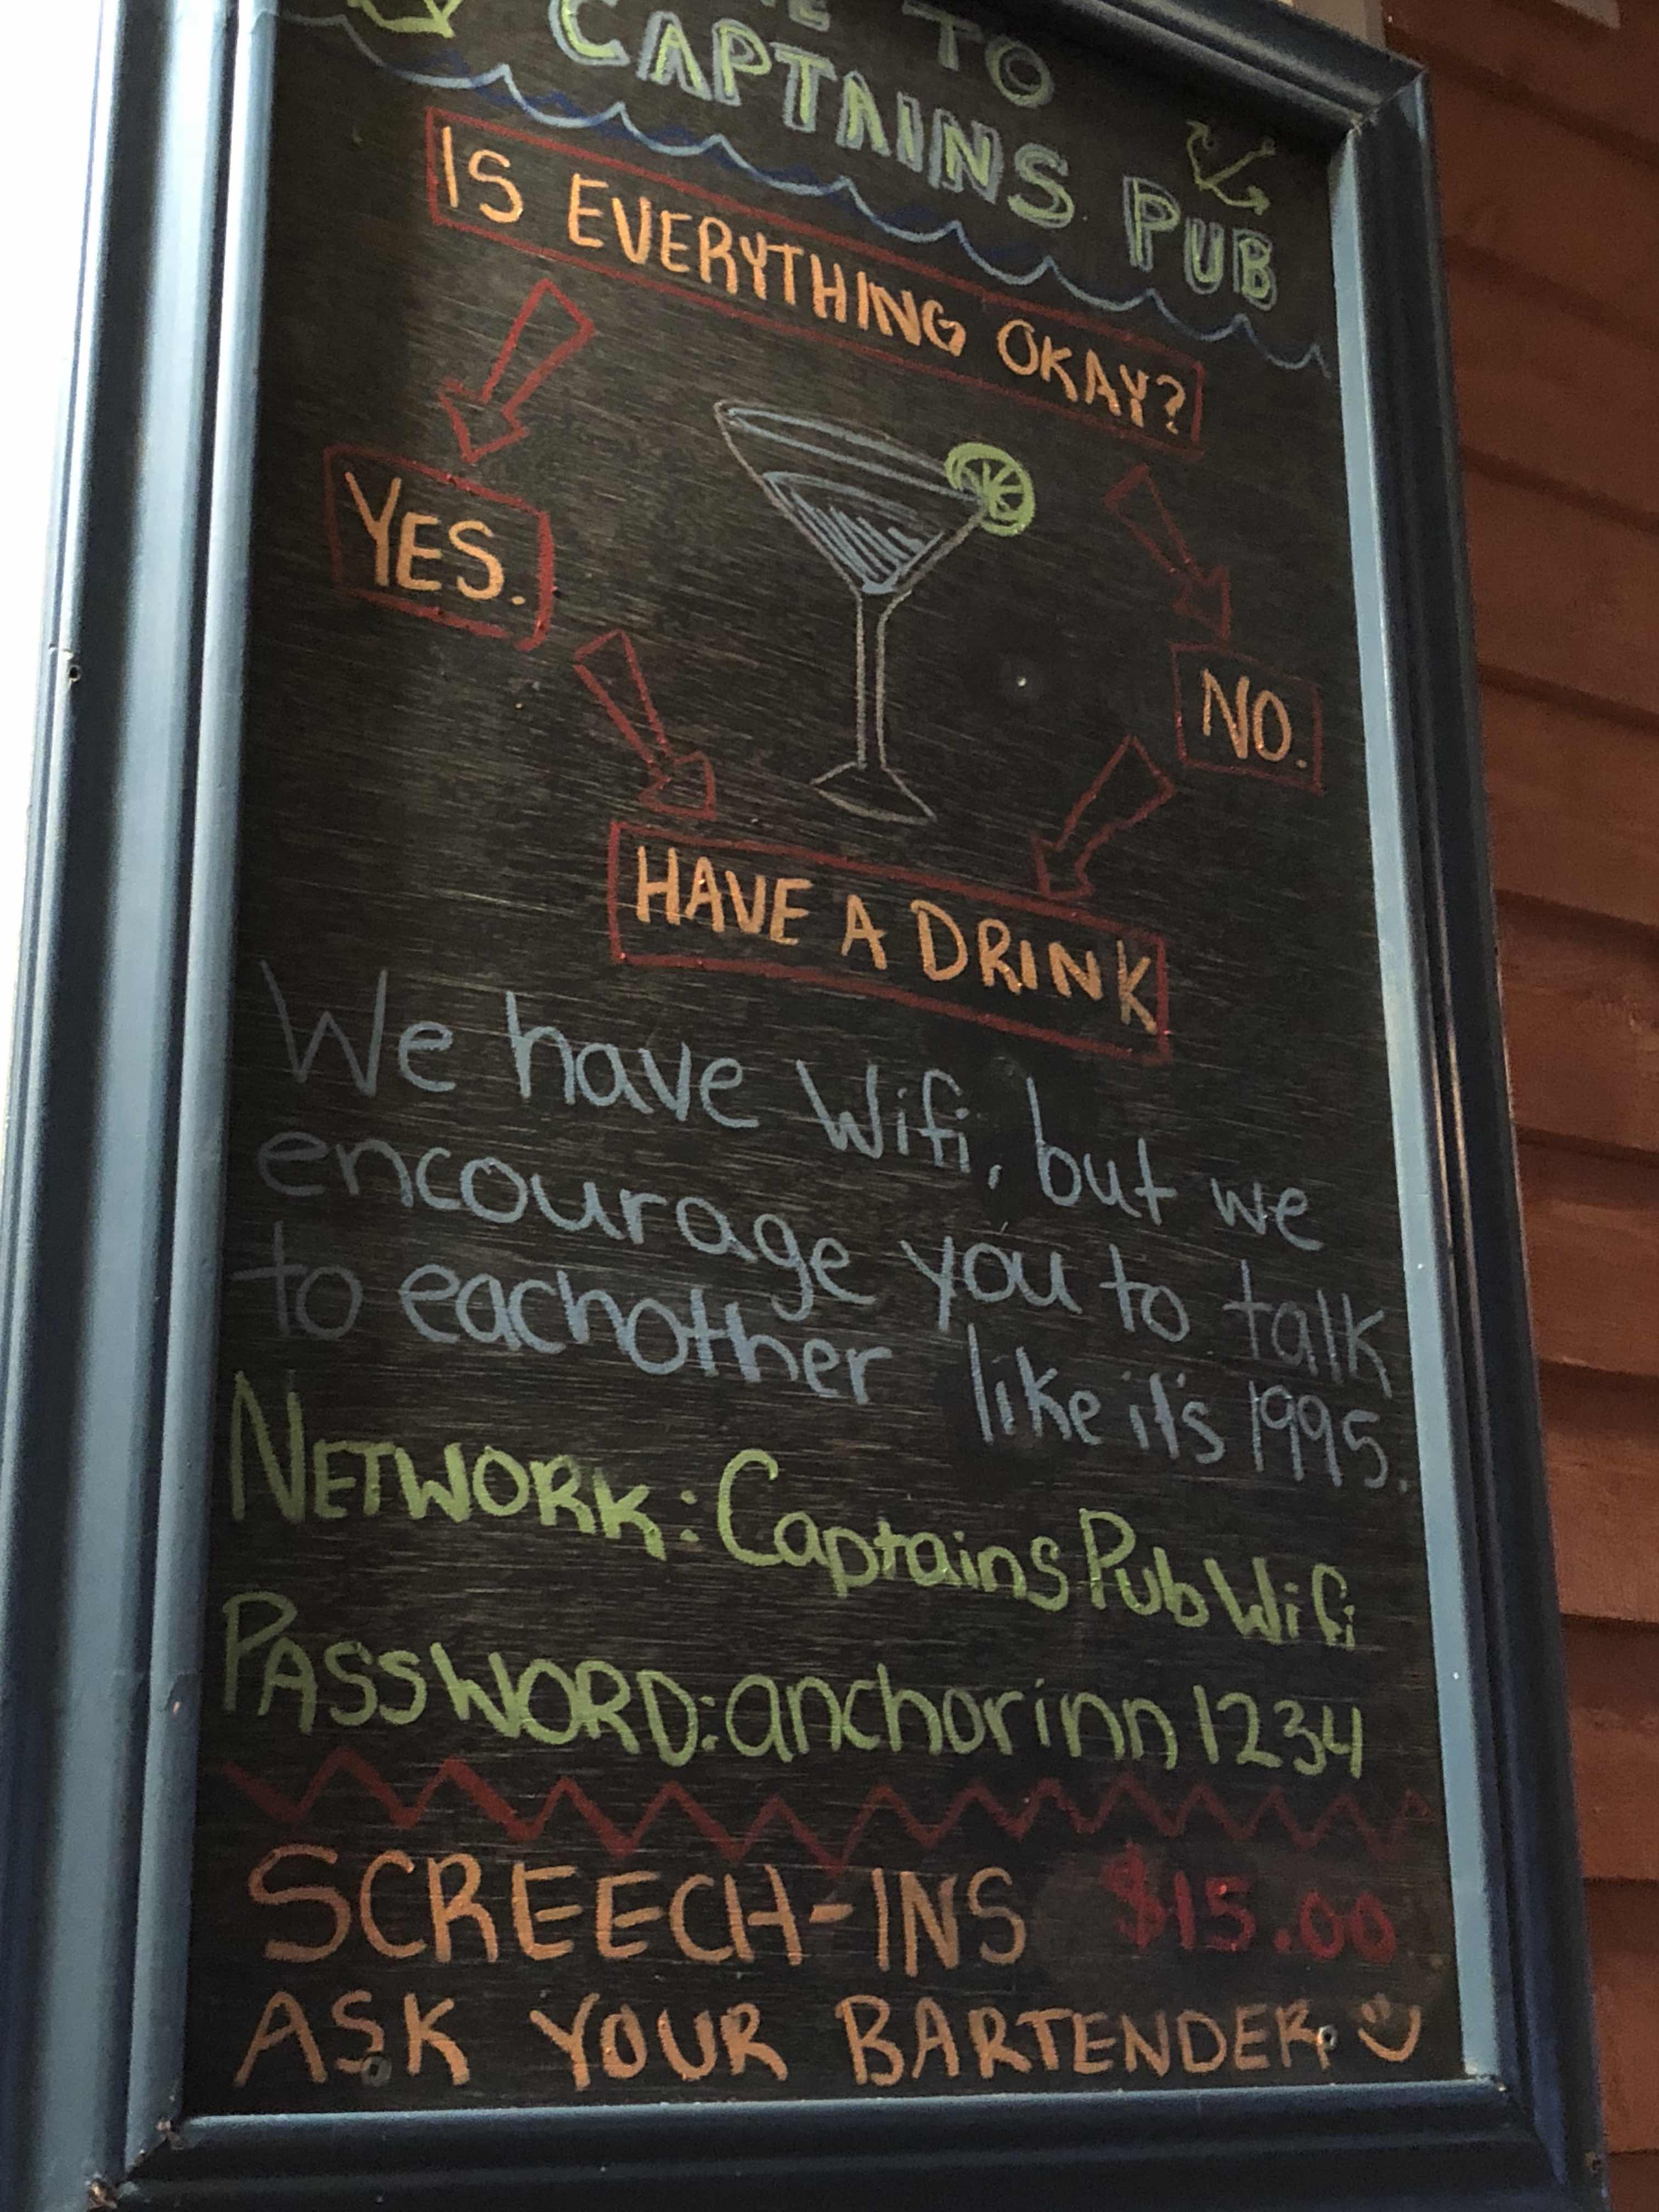 TO
CAPTAINS PUB
IS EVERYTHING OKAY?
YES.
NO.
HAVE A DRINK
We have Wifi, but we
encourage you to talk
to eachother like it's 1995.
NETWORK: CaptainsPubWifi
PASSWORD: anchorinn1234
SCREECH-INS $15.00
ASK YOUR BARTENDER